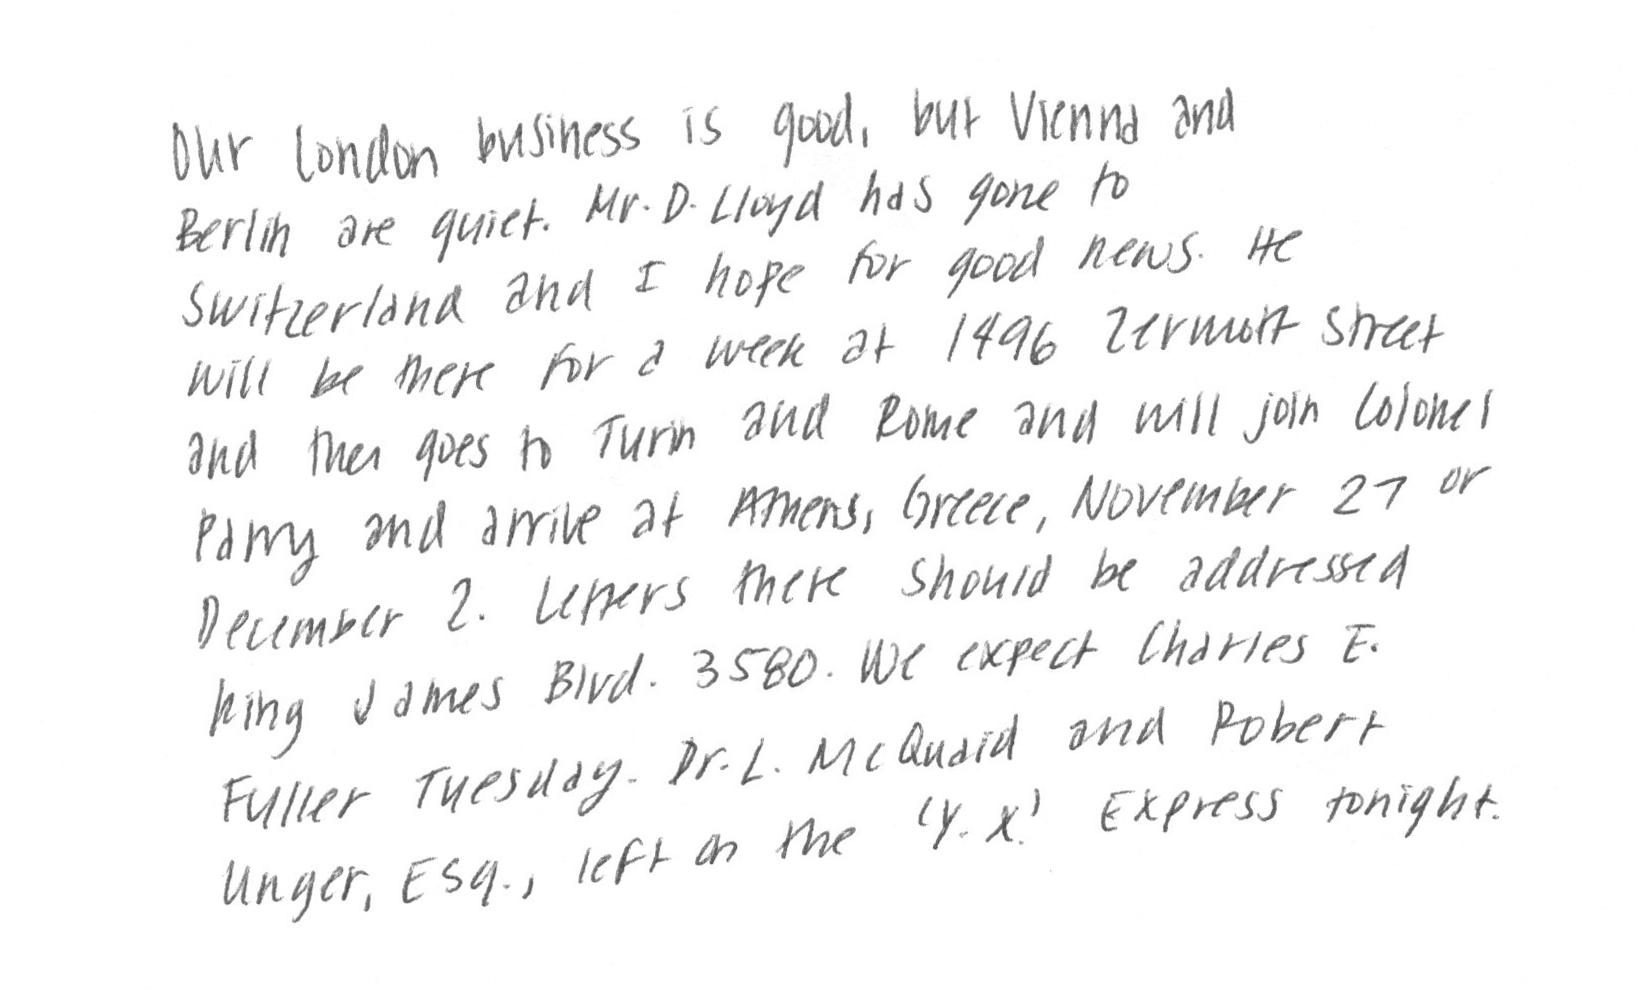 Our London business is good, but Vienna and
Berlin are quiet. Mr. D. Lloyd has gone to
Switzerland and I hope for good news. He
will be there for a week at 1496 Zermott Street
and then goes to Turin and Rome and will join Colonel
Parry and arrive at Athens, Greece, November 27 or
December 2. Letters there should be addressed
King James Blvd. 3580. We expect Charles E.
Fuller Tuesday. Dr. L. McQuaid and Robert
Unger, Esq., left on the 'Y. X.' Express tonight.